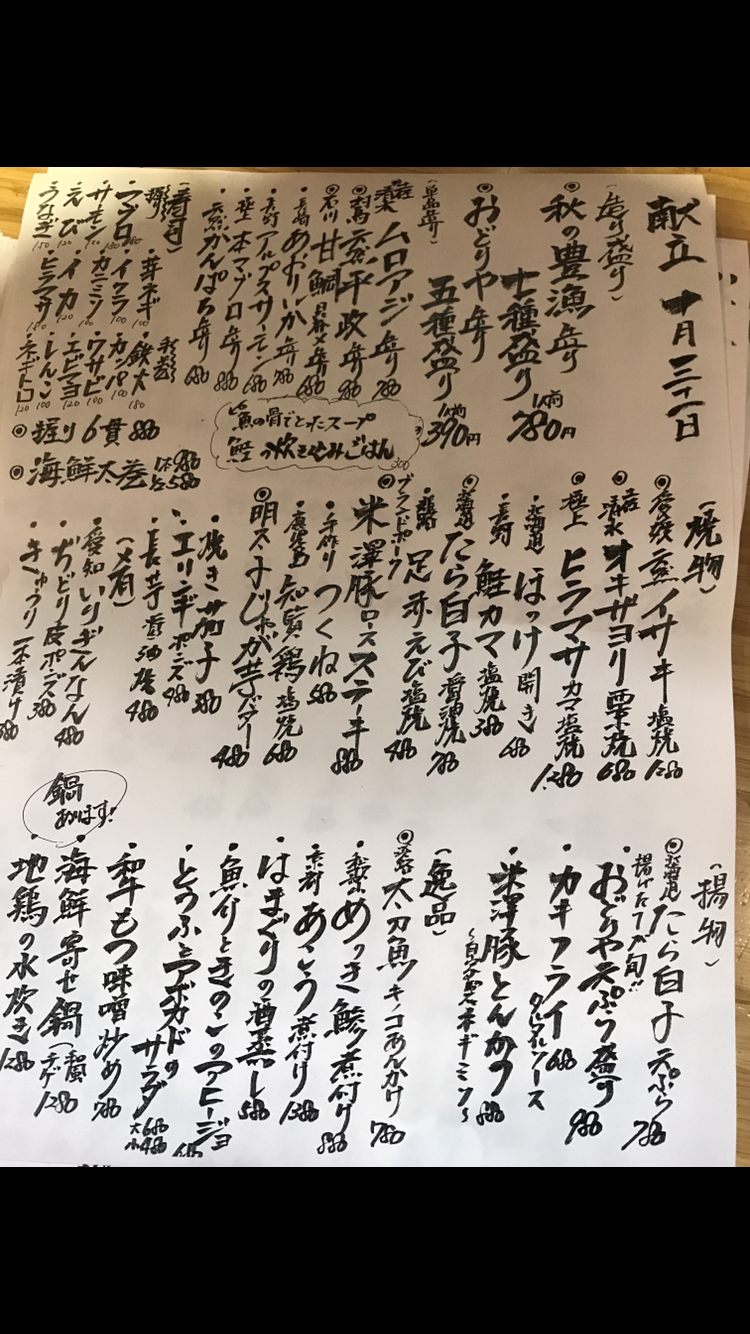 献立 十月三十一日
(造り盛り)
◎秋の豊漁造り
十種盛り 1人前 780円
◎おどりや造り
五種盛り 1人前 390円
(単品造り)
ムロアジ造り 780
◎平政造り 980
◎石川 甘鯛造り 980
・長崎 あおりいか造り 780
・長野 アルプスサーモン 680
・極上 本マグロ造り 880
・かんぱち造り 680
魚の骨でとったスープ
鮭の炊き込みごはん 300
(寿司)
握り
・マグロ
・サーモン 120
・えび 120
・うなぎ 150
・芽ネギ 100
・イクラ
・カニミソ 100
・イカ 120
・ヒラマサ 150
・鉄火 180
・カッパ 100
・ワサビ 100
・エビマヨ
・しんこ 100
・ネギトロ 120
◎握り6貫 880
◎海鮮太巻 1本 980
580
(焼物)
◎イサキ塩焼 1280
◎清水 オキザヨリ 焼 680
・極上 ヒラマサカマ塩焼 1280
・北海道 ほっけ開き 680
・長野 鮭カマ塩焼 380
◎北海道 たら白子醤油焼 780
足赤えび塩焼 480
ブランドポーク
◎米澤豚ロースステーキ 880
・手作り つくね 580
・鹿児島 知覧鶏塩焼 680
◎明太子じゃが芋バター 480
・焼き茄子 380
・エリンギポンズ 480
・長芋醤油焼 480
(〆肴)
・愛知 いりぎんなん 480
・ぢどり皮ポンズ 380
・きゅうり一本漬け 380
鍋
あります!
(揚物)
◎北海道 たら白子天ぷら 780
揚げたてが旬!!
・おどりや天ぷら盛り 980
・カキフライ 680
タルタルソース
・米澤豚とんかつ 880
(逸品)
◎太刀魚キノコあんかけ 780
めっき鯵煮付け 880
あこう煮付け 1380
・はまぐりの酒蒸し 580
・魚介ときのこのアヒージョ
・とうふとアボカドの
サラダ 大680
小480
・和牛もつ味噌炒め 780
・海鮮寄せ鍋 1280
・地鶏の水炊き 1280